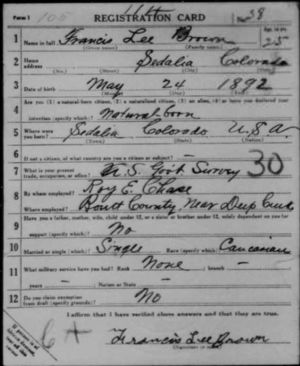 Form 1
REGISTRATION CARD
No. 38
1 Name in full Francis Lee Brown 25
(Given name) (Family name)
2 Home address Sedalia Colorado
(No.) (Street) (City) (State)
3 Date of birth May 24 1892
(Month) (Day) (Year)
4 Are you (1) a natural-born citizen, (2) a naturalized citizen, (3) an alien, (4) or have you declared your
intention (specify which)? Natural born
5 Where were you born? Sedalia Colorado U.S.A
(Town) (State) (Nation)
6 If not a citizen, of what country are you a citizen or subject?
7 What is your present trade, occupation, or office? U.S. Govt Survey 30
8 By whom employed? Roy E. Chase
Where employed? Routt County Near Deep Creek
9 Have you a father, mother, wife, child under 12, or a sister or brother under 12, solely dependent on you for
support (specify which)? No
10 Married or single (which)? Single Race (specify which)? Caucasian
11 What military service have you had? Rank None branch
years Nation or State
12 Do you claim exemption from draft (specify grounds)? No
I affirm that I have verified above answers and that they are true.
Francis Lee Brown